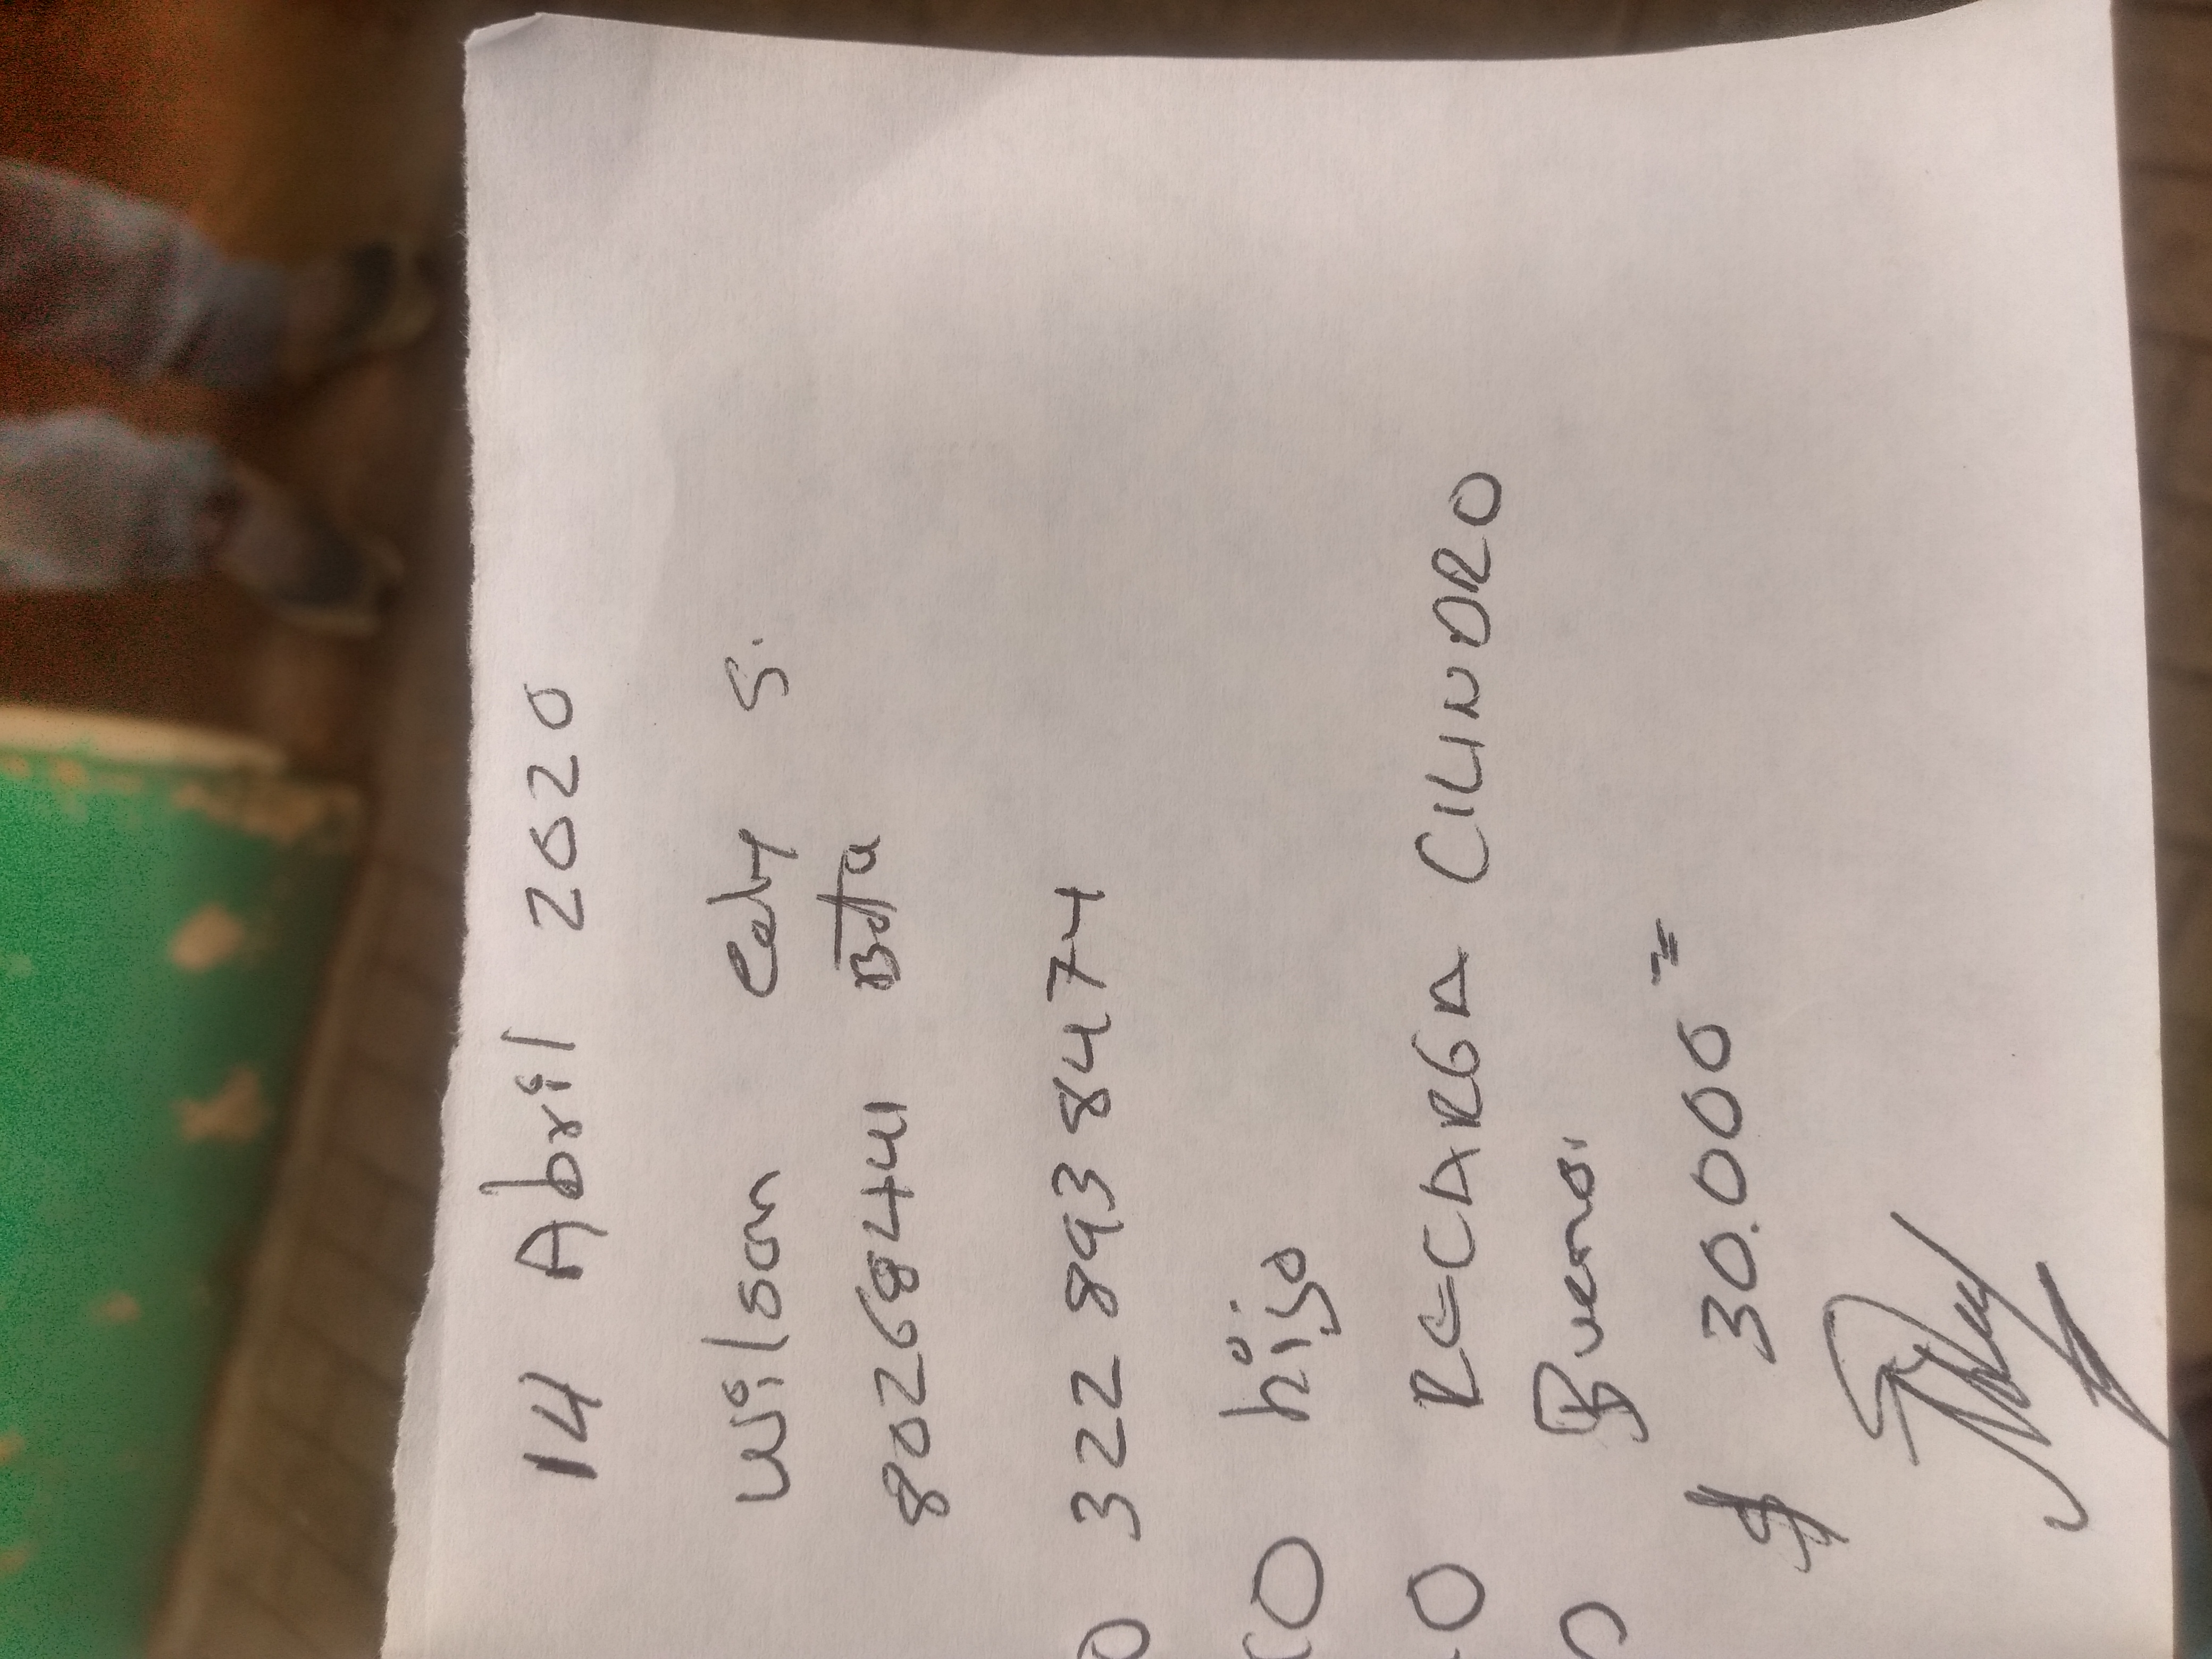 14 Abril 2020
Wilson Cely S.
80268441 Bta
0 322 893 8474
CO hijo
O RECARGA CILINDRO
O Bueno.
$ 30.000 =